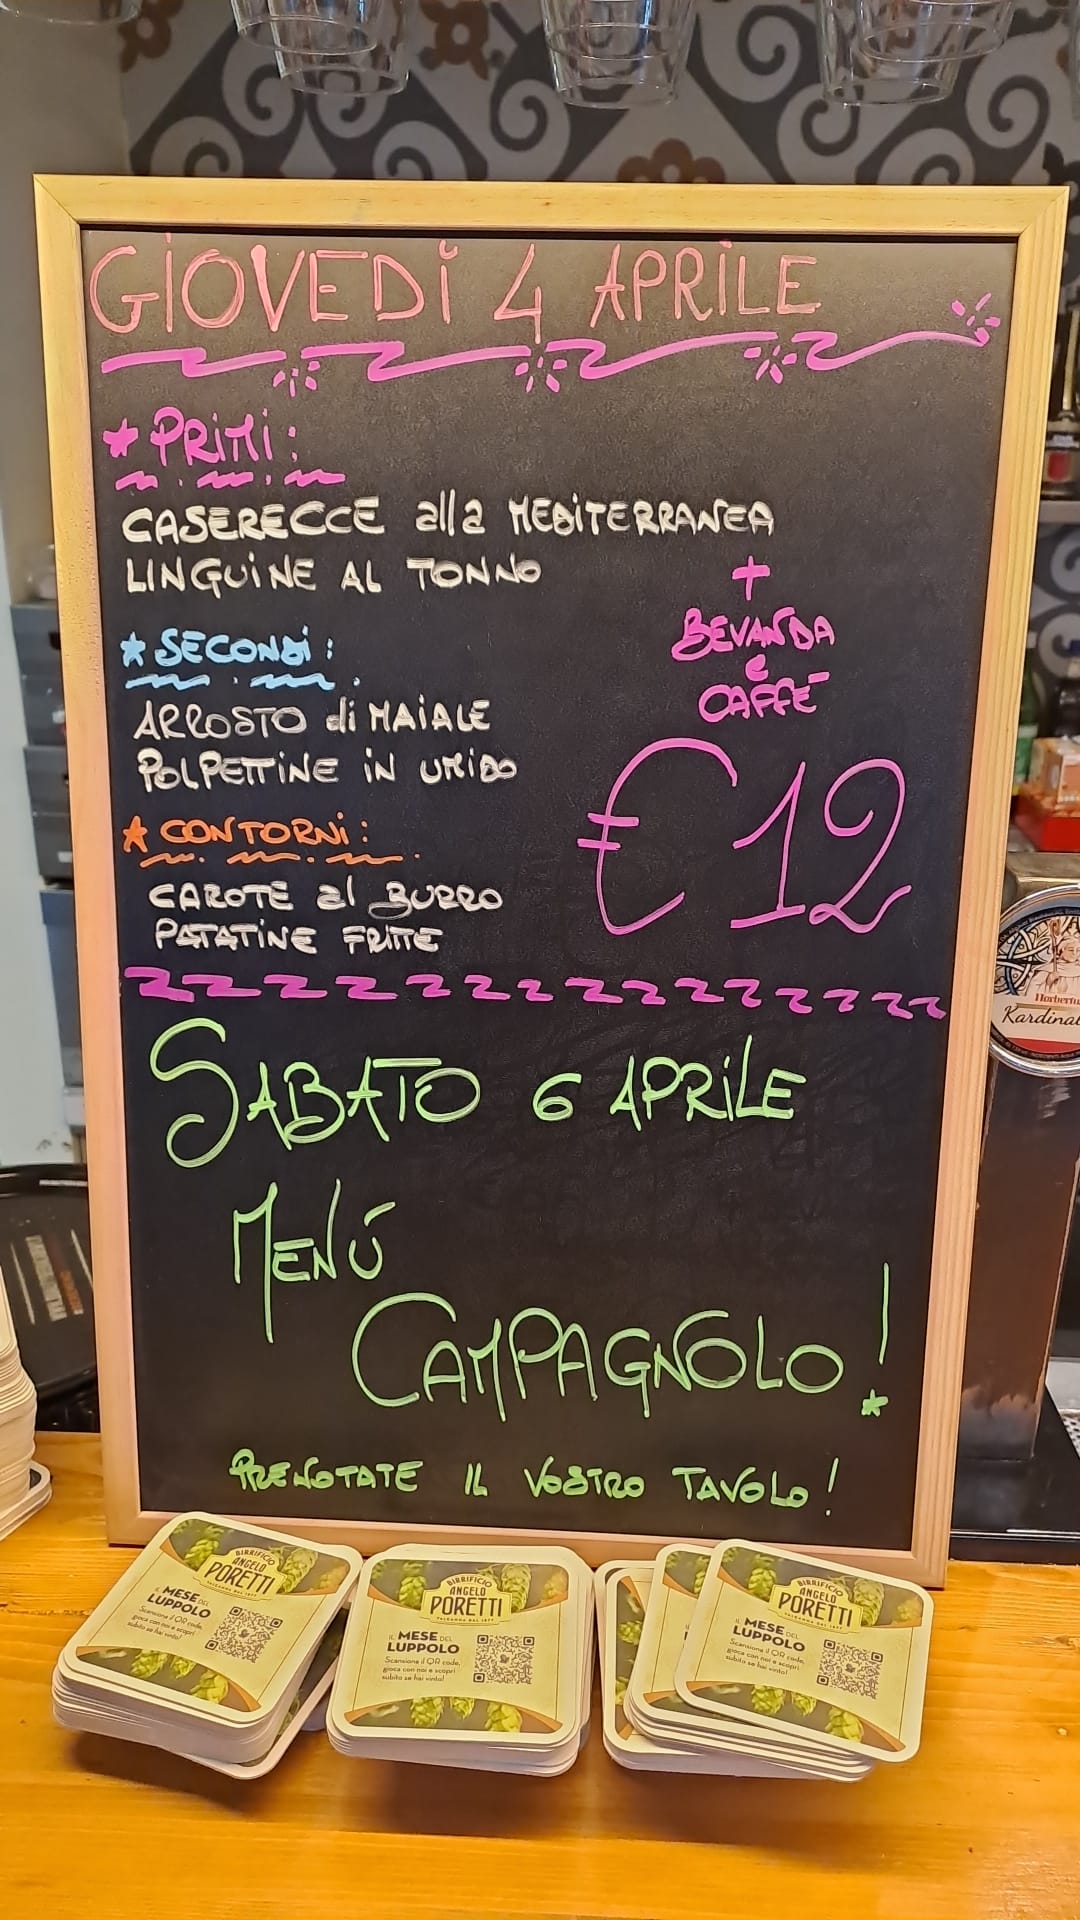 GIOVEDÌ 4 APRILE
* PRIMI:
CASERECCE alla MEDITERRANEA
LINGUINE AL TONNO
* SECONDI:
ARROSTO di MAIALE
POLPETTINE IN UMIDO
* CONTORNI:
CAROTE al BURRO
PATATINE FRITTE
+
BEVANDA
e
CAFFÈ
€12
SABATO 6 APRILE
MENÚ
CAMPAGNOLO!
PRENOTATE IL VOSTRO TAVOLO!
Kardinal
BIRRIFICIO
ANGELO
PORETTI
VALGANNA DAL 1877
IL MESE DEL
LUPPOLO
Scansiona il QR code,
gioca con noi e scopri
subito se hai vinto!
BIRRIFICIO
ANGELO
PORETTI
VALGANNA DAL 1877
IL MESE DEL
LUPPOLO
Scansiona il QR code,
gioca con noi e scopri
subito se hai vinto!
BIRRIFICIO
ANGELO
PORETTI
VALGANNA DAL 1877
IL MESE DEL
LUPPOLO
Scansiona il QR code,
gioca con noi e scopri
subito se hai vinto!